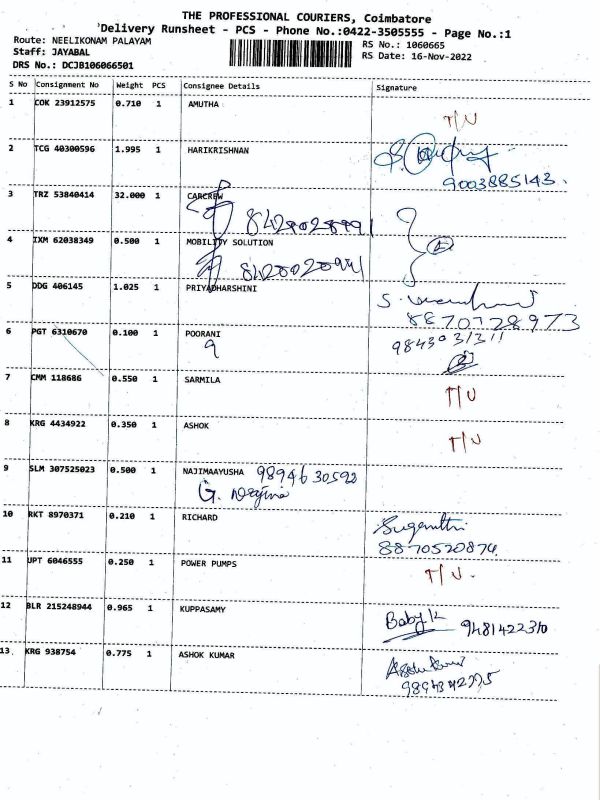 THE PROFESSIONAL COURIERS, Coimbatore
Delivery Runsheet - PCS - Phone No.:0422-3505555 - Page No.:1
Route: NEELIKONAM PALAYAM
Staff: JAYABAL
DRS No.: DCJB106066501
RS No.: 1060665
RS Date: 16-Nov-2022
S No Consignment No Weight PCS Consignee Details Signature
1 COK 23912575 0.710 1 AMUTHA
T/U
2 TCG 40300596 1.995 1 HARIKRISHNAN
9003885143.
3 TRZ 53840414 32.000 1 CARCREW
4 IXM 62038349 0.500 1 MOBILITY SOLUTION
5 DDG 406145 1.025 1 PRIYADHARSHINI
8870728973
6 PGT 6310670 0.100 1 POORANI
9
7 CMM 118686 0.550 1 SARMILA
T/U
8 KRG 4434922 0.350 1 ASHOK
T/U
9 SLM 307525023 0.500 1 NAJIMAAYUSHA 9894630592
10 RKT 8970371 0.210 1 RICHARD Suganthi
8870520874
11 UPT 6046555 0.250 1 POWER PUMPS T/U.
12 BLR 215248944 0.965 1 KUPPASAMY
Baby K 9481422310
13 KRG 938754 0.775 1 ASHOK KUMAR